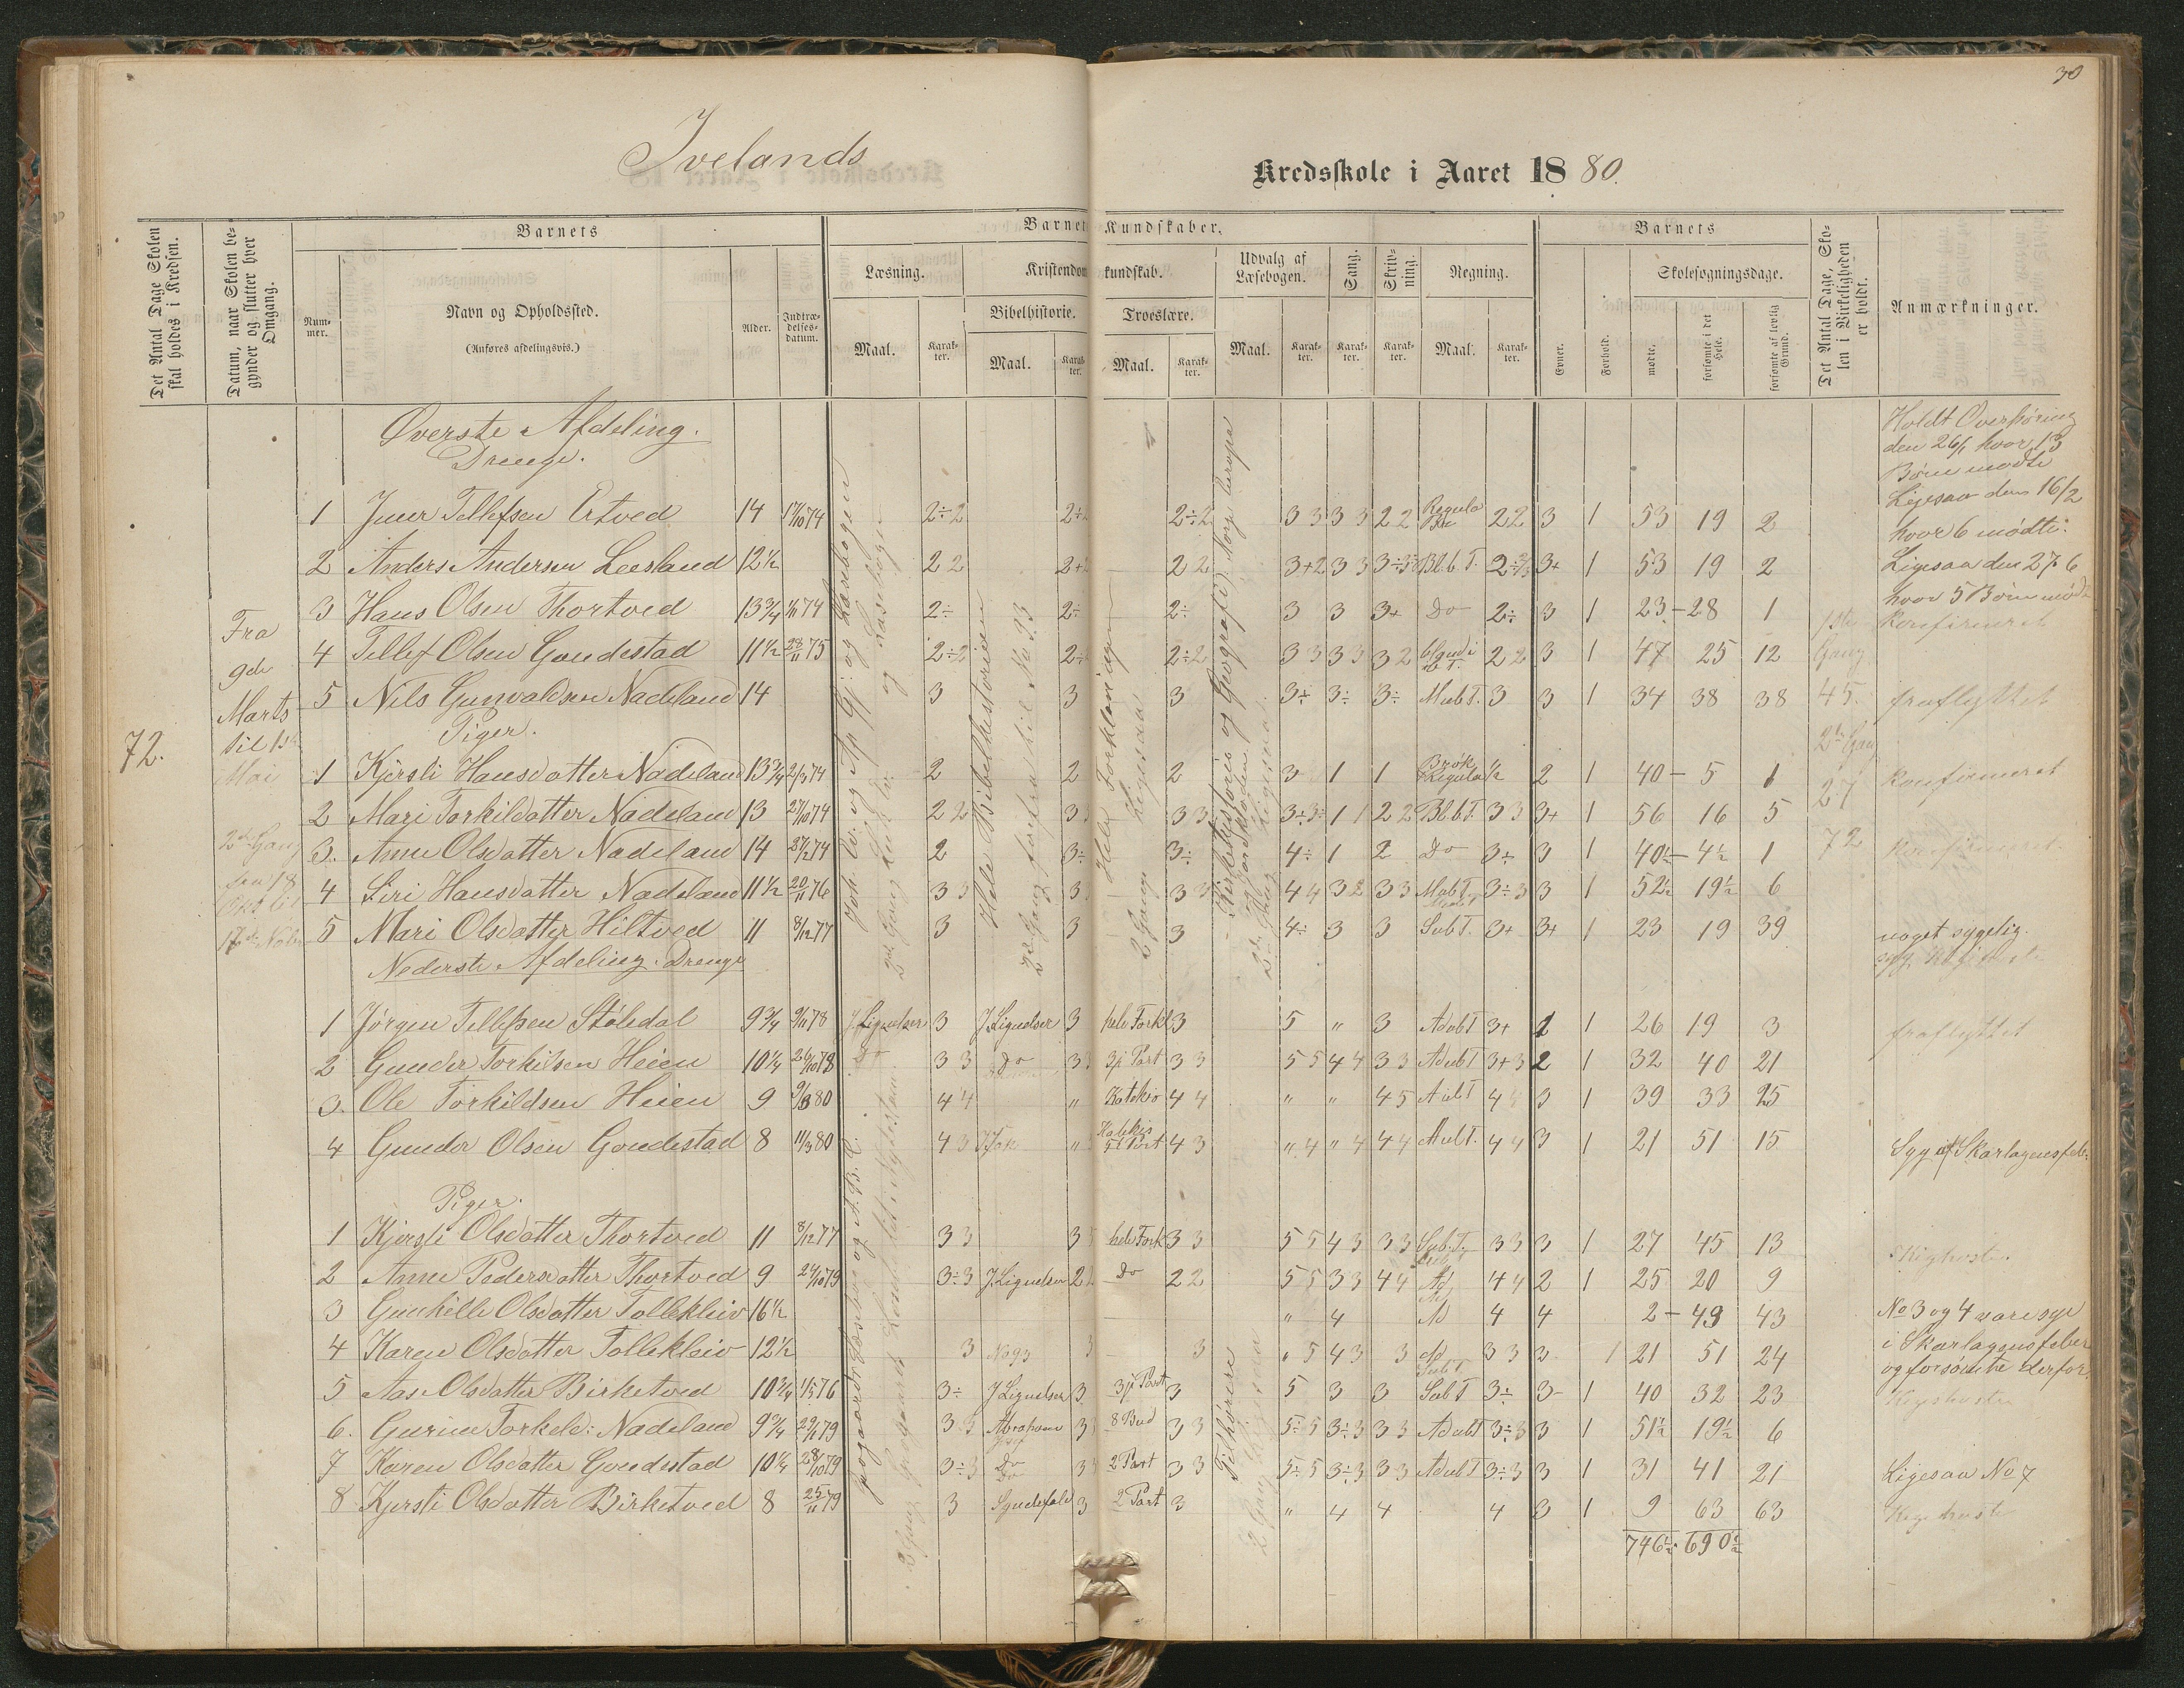 30
Ivelands
Kredsskole i Aaret 1880.
Det Antal Dage Skolen skal holdes i Kredsen.
Datum, naar Skolen begynder og slutter hver Omgang.
Barnets
Nummer.
Navn og Opholdssted.
(Anføres afdelingsvis.)
Alder.
Indtrædelsesdatum.
Barnets Kundskaber.
Læsning.
Maal.
Karakter.
Kristendomskundskab.
Bibelhistorie.
Maal.
Karakter.
Troeslære.
Maal.
Karakter.
Udvalg af Læsebogen.
Maal.
Karakter.
Sang.
Karakter.
Skrivning.
Karakter.
Regning.
Maal.
Karakter.
Barnets
Evner.
Forhold.
Skolesøgningsdage.
mødte.
forsømte i det Hele.
forsømte af lovlig Grund.
Det Antal Dage, Skolen i Virkeligheden er holdt.
Anmærkninger.
72.
Fra
9de
Marts
til 1ste
Mai
2den Gang
Øverste Afdeling.
Drenge.
1 Tellefsen Ertved 14 17/10 74 2÷2 2÷2 3 3 3 3 2 2 Regula 2 2 3 1 53 19 2
2 Anders Andersen Leesland 12½ 2 2 2 2 3+2 3 3 Bl.b.T. 3+ 1 53 19 2
3 Hans Olsen Thortved 13¾ 74 2÷ 2÷ 2÷ 3 3 3+ Do 2÷ 3 1 23 - 28 1 konfirmeret
4 Tellef Olsen Goudestad 11½ 28/11 75 2÷2 2÷2 3 3 3 3 3 2 2 2 3 1 47 25 12
5 Nils Gunvaldsen Nadeland 14 3 3 3 3+ 3÷ 3÷ Mub T. 3 3 1 34 38 38 fraflyttet
Piger.
1 Kjersti Hansdatter Nadeland 13¾ 74 2 2 2 3 1 1 Brøk Regula ½ 2 1 40 - 5 1 konfirmeret
2 Mari Torkildatter Nadeland 13 27/10 74 2 2 3 3 3 1 1 2 2 Bl.b.T. 3 3 3+ 1 56 16 5
3. Anne Olsdatter Nadeland 14 74 2 3÷ 3÷ 4÷ 1 2 Do 3÷ 3 1 40½ - 4½ 1
4 Siri Hansdatter Nadeland 11½ 20/11 76 3 3 3 3 3 4 4 3 2 3 3 Mub T. 3÷3 3 1 52½ 19½ 6
5 Mari Olsdatter Hiltved 11 8/12 77 3 3 3 4÷ 3 3 Sub T. 3+ 3+ 1 23 19 39 noget sygelig.
Nederste Afdeling. Drenge
1 Jørgen Tellefsen Støledal 9¾ 9/11 78 J. Lignelser 3 J. Lignelser 3 hele Forkl 3 5 " 3 Adub T 3+ 1 1 26 19 3 fraflyttet
2 Gunder Torkilsen Heien 10¼ 26/10 78 Do 3 3 Do 3 3 3j Part 3 3 5 5 4 4 3 3 Adub T 3+3 2 1 32 40 21
3. Ole Torkildsen Heien 9 9/3 80 4 4 " Katekis 4 4 " " 4 5 4 4 3 1 39 33 25
4 Gunder Olsen Goudestad 8 11/3 80 4 3 " Katekis Part 4 3 " 4 " 4 4 4 4 4 3 1 21 51 15 Syg af Skarlagensfeber
Piger.
1 Kjersti Olsdatter Thortved 11 8/12 77 3 3 3 hele Fork 3 3 5 5 4 3 3 3 Sub.T. 3 3 3 1 27 45 13 Kighoste.
2 Anne Pedersdatter Thortved 9 24/10 79 3÷3 J. Lignelser 2 Do 2 2 5 5 3 3 4 4 Ad 4 4 2 1 25 20 9
3 Gunhille Olsdatter Tollekleiv 16½ " 4 Ad 4 4 2 - 49 43 No 3 og 4 vare syge
4 Karen Olsdatter Tollekleiv 12½ 3 No 93 3 3 " 5 4 3 3 3 3 3 1 21 51 24 i Skarlagensfeber
5 Aas Olsdatter Birketved 10¾ 76 3÷ J. Lignelser 3 3j Part 3 5 3 3 Sub T 3÷ 3- 1 40 32 23 og forsømte derfor.
6. Gurine Torkeld: Nadeland 9¾ 79 3 3 Abraham 3 3 8 Bud 3 3 5÷5 3÷3 3 3 Adub T 3÷3 3 1 51½ 19½ 6
7 Karen Olsdatter Goudestad 10¼ 28/10 79 3÷3 Do 3 2 Part 3 3 5÷5 3÷3 3 3 Adub T 3÷3 3 1 31 41 21 Ligesaa No 7
8 Kjersti Olsdatter Birketved 8 25/11 79 3 Syndefald 3 2 Part 3 " 4 4 4 3 1 9 63 63
746½ 690½
Hele Bibelhistorien
Hele Forklaringen
2 Gang Ligesaa
Holdt Overhøring
den 26/1 hvor 13
Børn mødte
Ligesaa den 16/2
hvor 6 mødte.
Ligesaa den 27 6
hvor 5 Børn mødte
1ste
Gang
45.
2den Gang
27
72